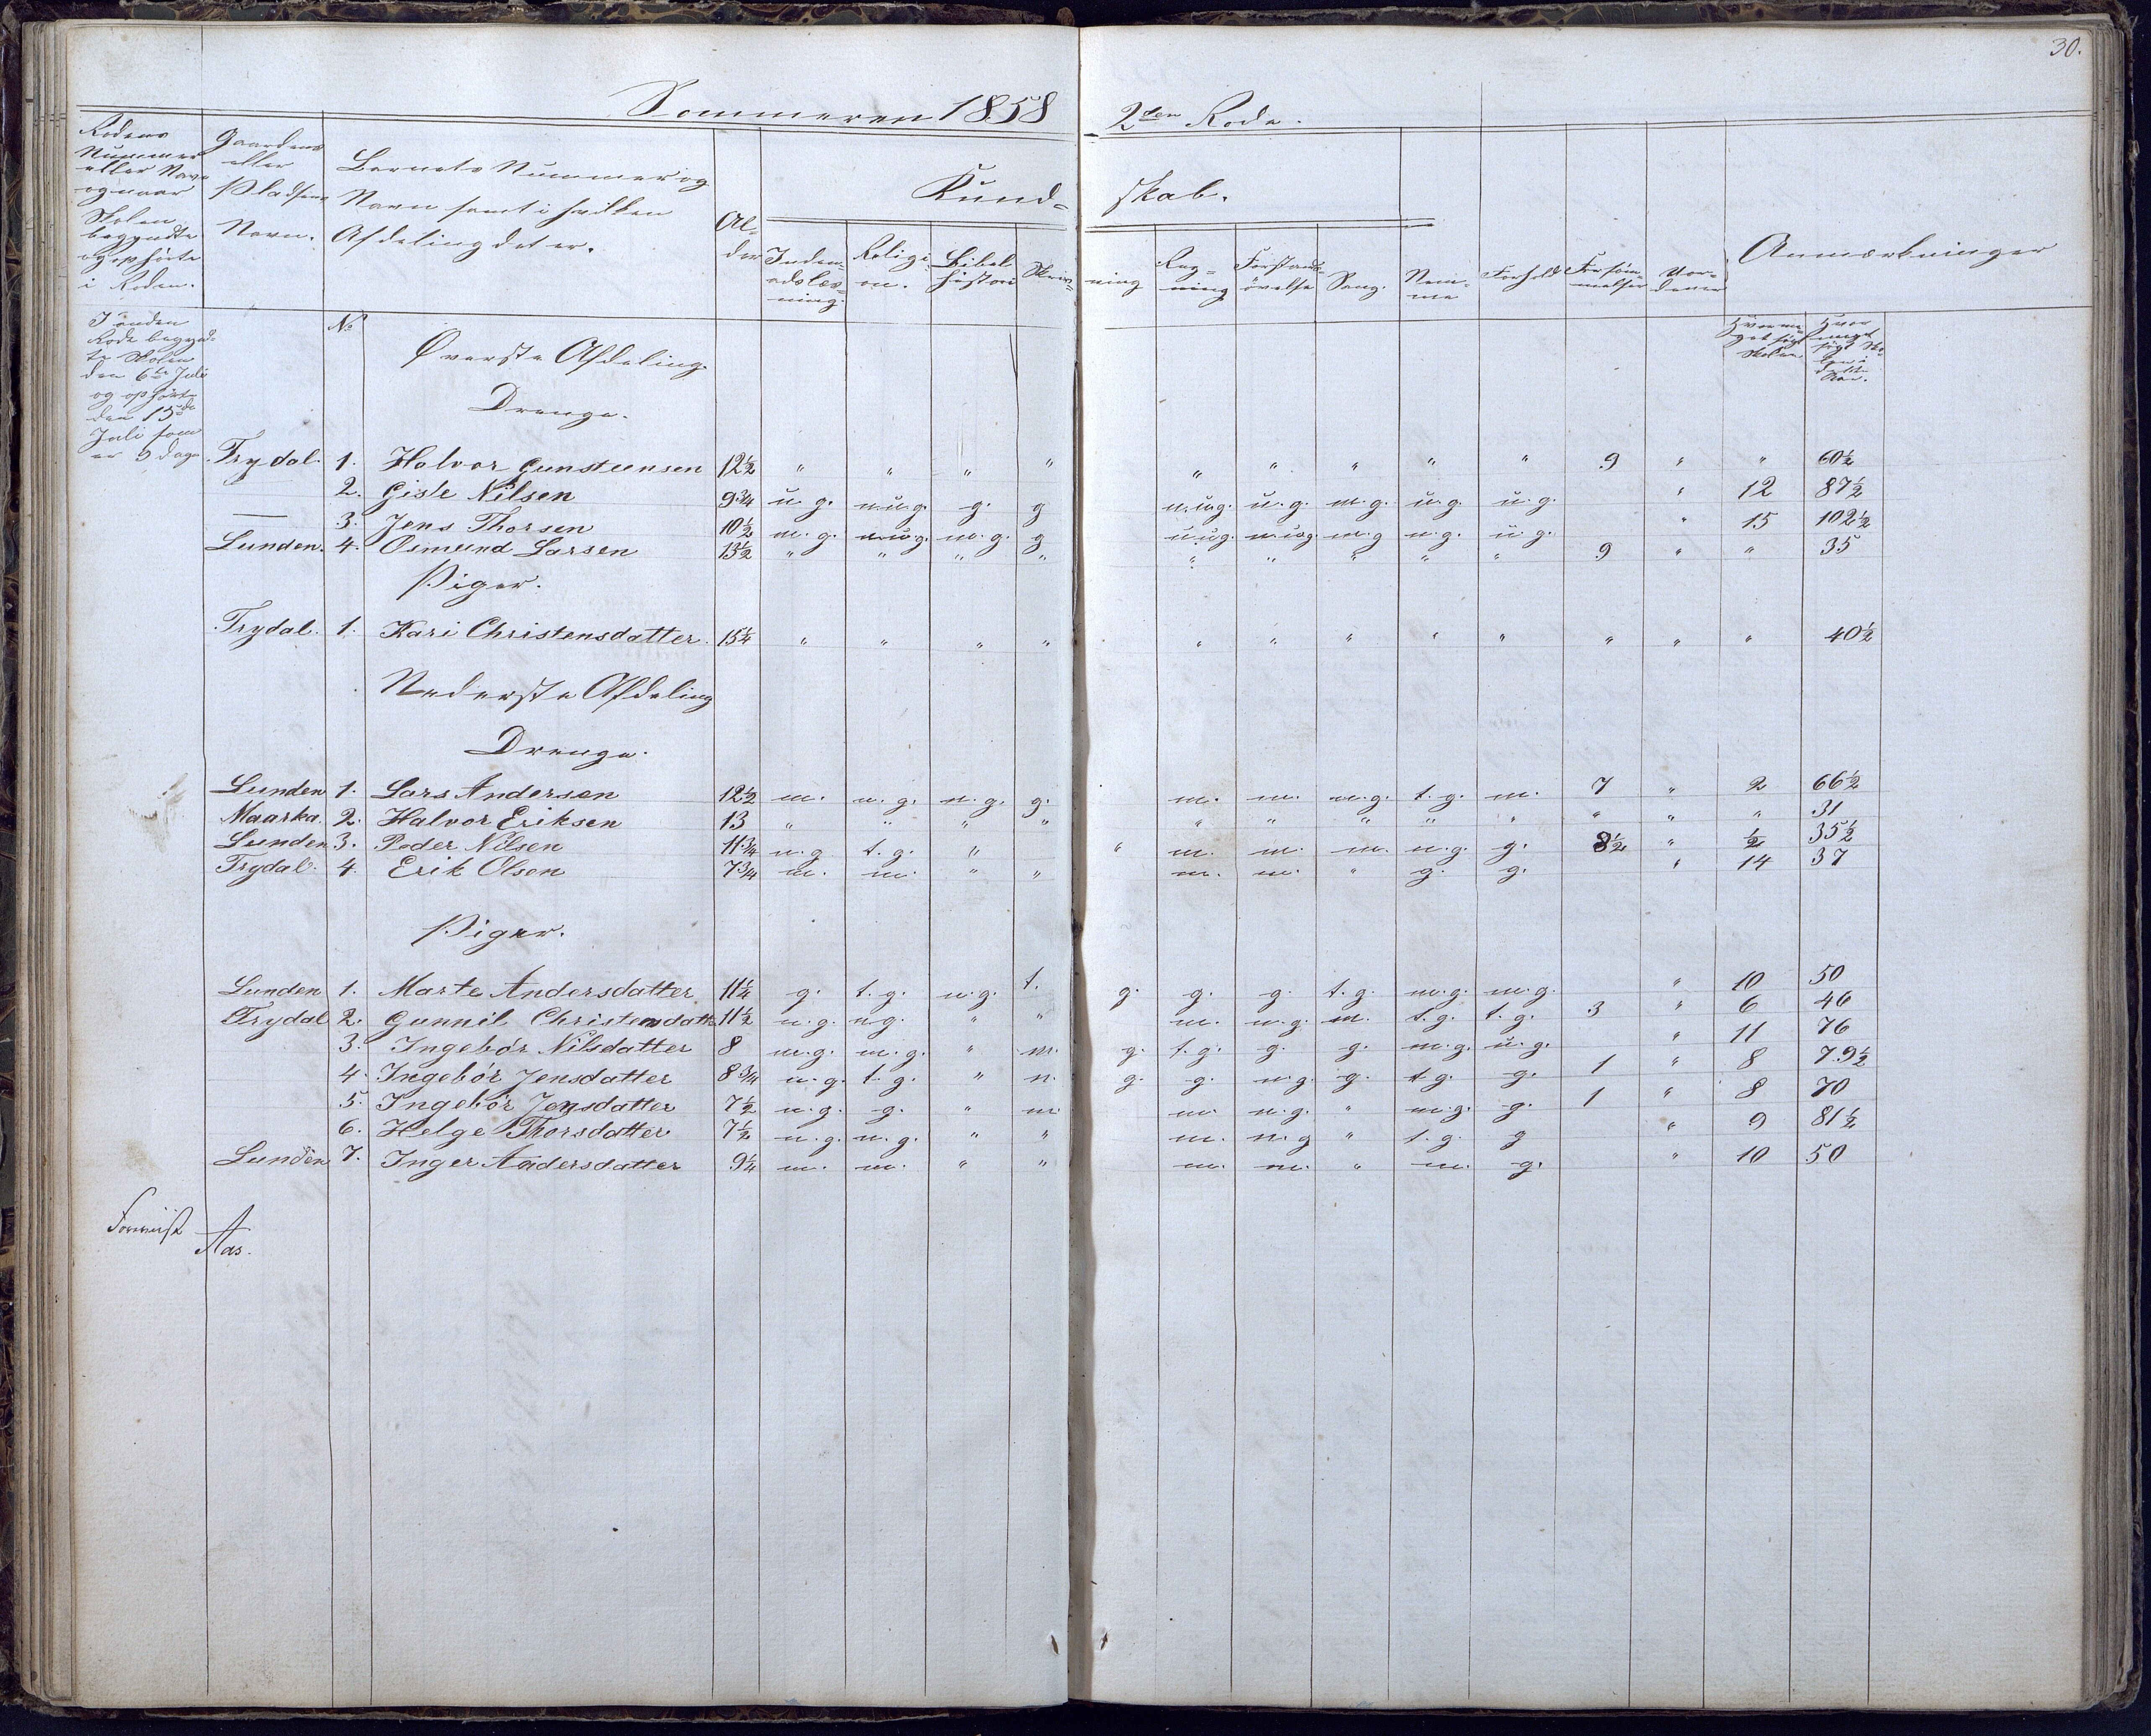 30.
Sommeren 1858 2den Rode.
Rodens Nummer eller Navn og naar Skolen begyndte og ophørte i Roden.
Gaardens eller Pladsens Navn.
Barnets Nummer og Navn samt i hvilken Afdeling det er.
Alder
Kundskab.
Indenadslæsning.
Religion.
Bibelhistorie
Skrivning
Regning
Forstandsøvelse
Sang.
Nemme
Forhold
Forsømmelser
Anmærkninger
I anden Rode begyndte Skolen den 6te Juli og ophørte den 15de Juli som er 9 Dage
No
Øverste Afdeling.
Drenge.
Trydal. 1. Halvor Gunsteensen 12½ " " " " " " " " " 9 " " 60½
2. Gisle Nilsen 9¾ u.g. m.u.g. g. g m.u.g. u.g. m.g. u.g. u.g. " 12 87½
— 3. Jens Thorsen 10½ m.g. m.u.g. m.g. g u.u.g. m.u.g. m.g n.g. u.g. " 15 102½
Lunden. 4. Osmund Larsen 13½ " " " " " " " " " 9 " " 35
Piger.
Trydal. 1. Kari Christensdatter. 15¼ " " " " " " " " " " " " 40½
Nederste Afdeling
Drenge.
Lunden 1. Lars Andersen 12½ m. n.g. n.g. g. m. m. m.g. t.g. m. 7 " 2 66½
Maarka. 2. Halvor Eriksen 13 " " " " " " " " " " " " 31
Lunden 3. Peder Nilsen 11¾ n.g t.g. " " m. m. m. n.g. g. 8½ " ½ 35½
Trydal. 4. Erik Olsen 7¾ m. m. " " m. m. " g. g. " 14 37
Piger.
Lunden 1. Marte Andersdatter 11½ g. t.g. n.g. t. g. g. g. t.g. m.g. m.g. " 10 50
Trydal 2. Gunnil Christensdatt 11½ n.g. n.g. " " m. n.g. m. t.g. t.g. 3 " 6 46
3. Ingebór Nilsdatter 8 m.g. m.g. " m. g. t.g. g. g. m.g. u.g. " 11 76
4. Ingebór Jensdatter 8¾ n.g. t.g. " n. g. g. n.g. g. t.g. g. 1 " 8 79½
5. Ingebór Jensdatter 7½ n.g. g. " m. m. n.g. " m.g. g. 1 " 8 70
6. Helge Thorsdatter 7½ n.g. n.g. " " m. n.g " t.g. g " 9 81½
Lunden 7. Inger Andersdatter 9¼ m. m. " " m. m. " m. g. " 10 50
Aas.